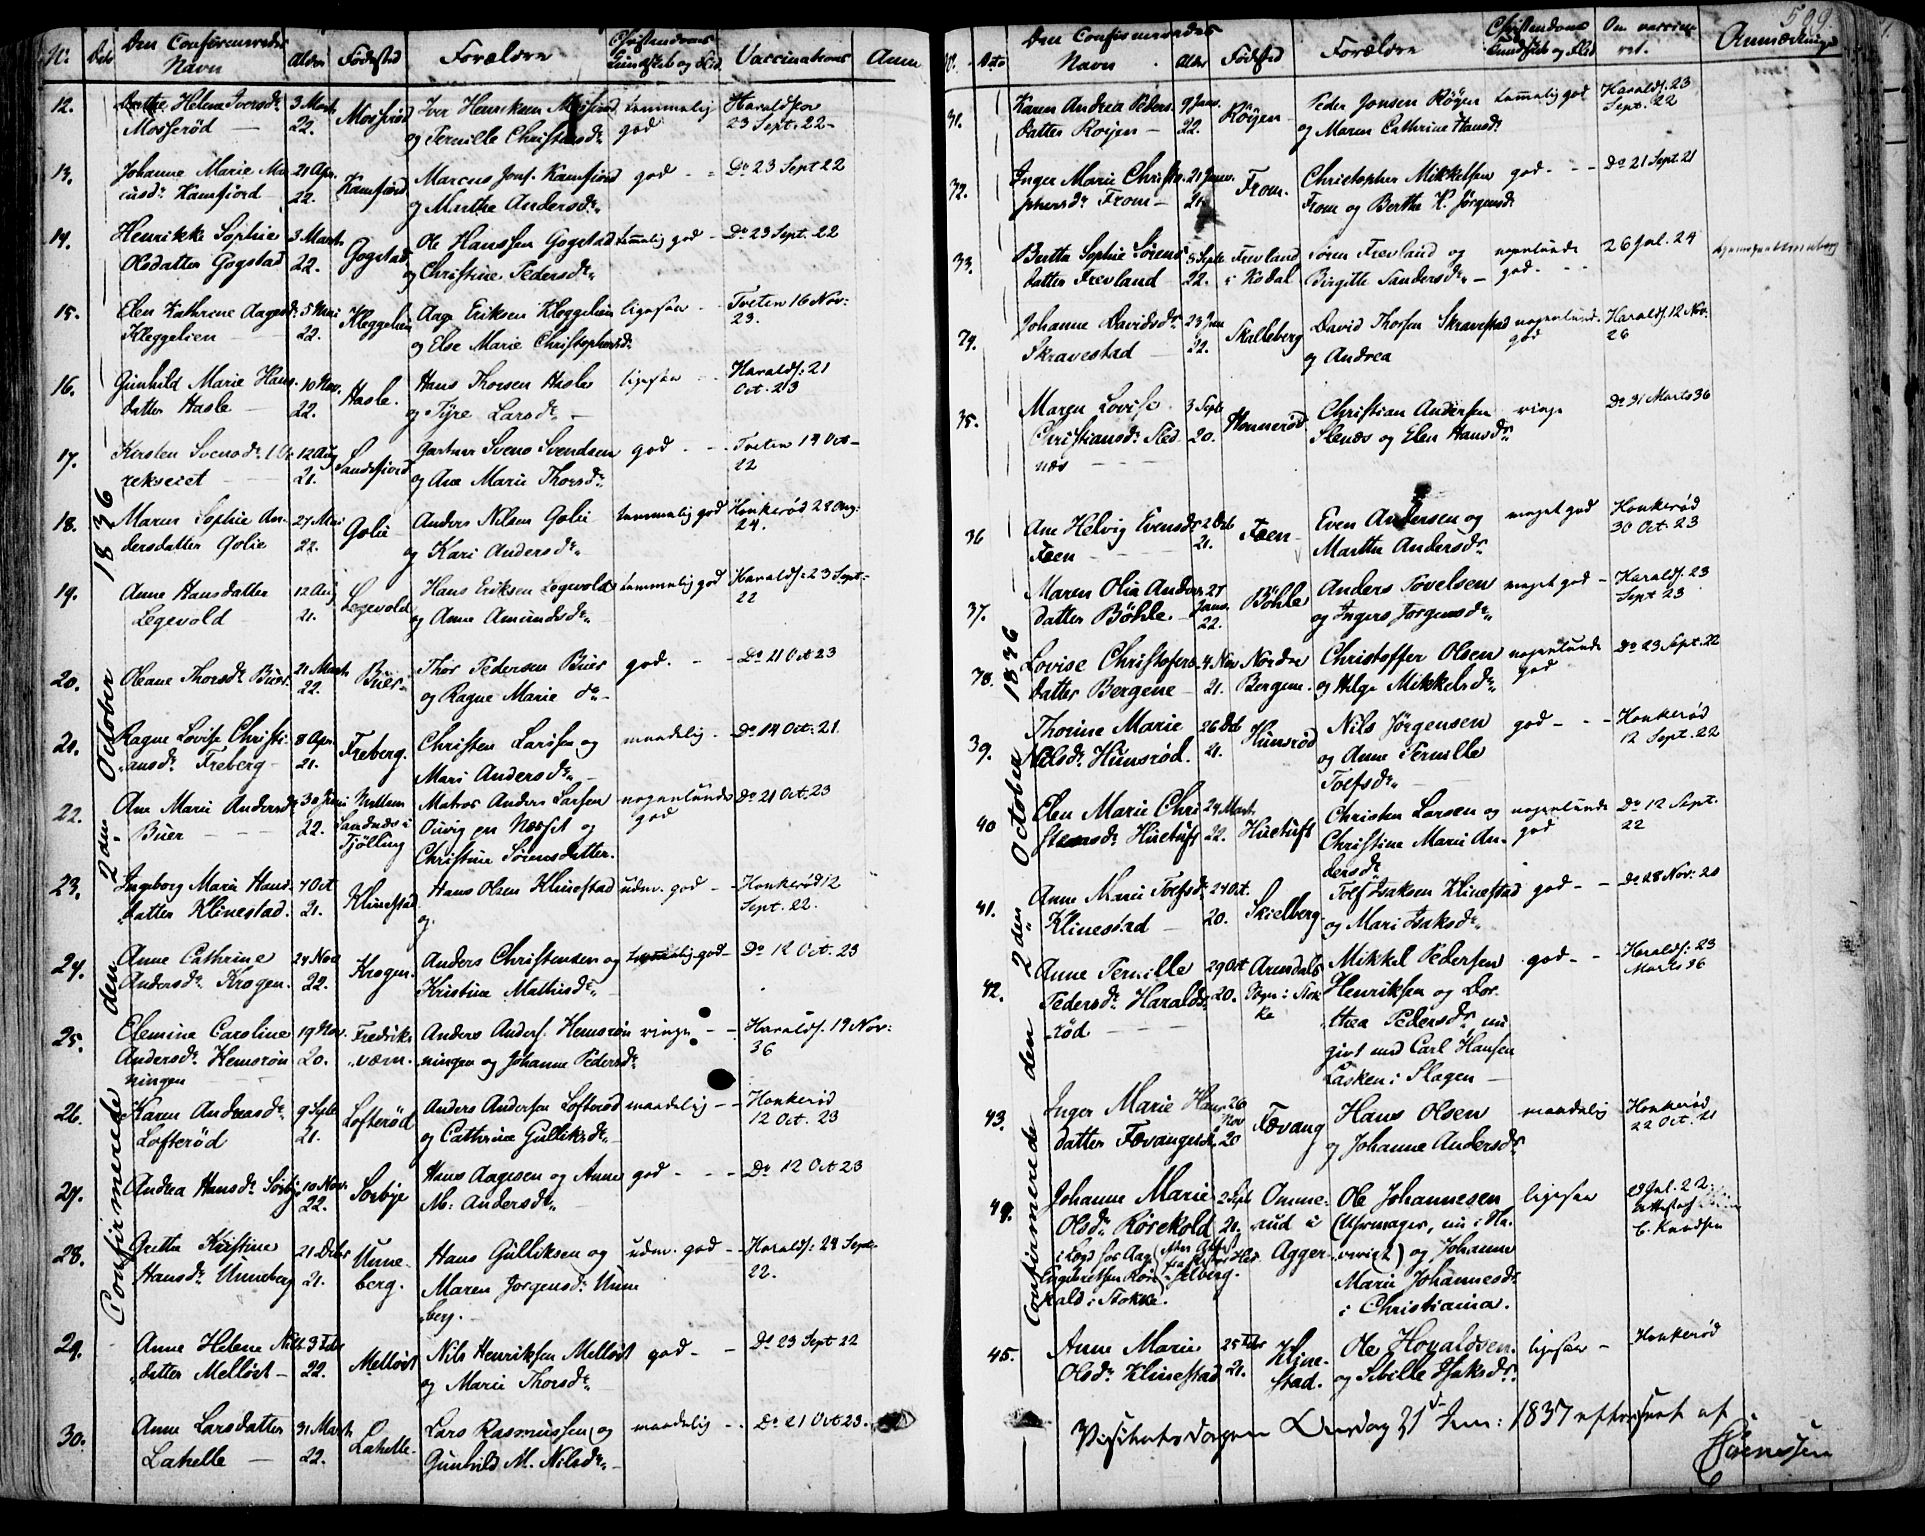 N:
Dato
Den Confirmeredes
Navn
Alder
Fødested
Forældre
Christendoms
Kundskab og Flid
Vaccinations
Anm
12.
Berthe Helene Iversdr.
Mosserød
3 Marts
22.
Mosserød
Iver Henriksen Mosserød
og Pernille Christensdr.
temmelig
god
Haraldsen
23 Sept. 22
13.
Johanne Marie Mar
cusdr. Kamfiord
21 Apr.
22.
Kamfiord
Marcus Jons. Kamfiord
og Marthe Andersdr.
god
Do 23 Sept 22
14.
Henrikke Sophie
Olsdatter Gogstad
3 Marts
22.
Gogstad
Ole Hanssen Gogstad
og Christine Pedersdr.
temmelig god
Do 23 Sept. 22
15.
Elen Kathrine Aagesdr.
Kleggelien
5 Mai
22.
Kleggelien
Aage Eriksen Kleggelien
og Else Marie Christophersdr.
ligesaa
Tveten 16 Nov:
23.
16.
Gunhild Marie Hans
datter Hasle
10 Nov.
22.
Hasle.
Hans Thorsen Hasle
og Tyre Larsdr.
ligesaa
Haralds: 21
Oct. 23
17.
Kersten Svensdr.
12 Aug
21.
Sandefiord
Gartner Svend Svendsen
og Ane Marie Thorsdr.
god
Tveten 14 Oct
22
18.
Maren Sophie An-
dersdatter Golie
27 Mai
22.
Golie
Anders Nilsen Golie
og Kari Andersdr.
temmelig god
Honkerød 28 Aug:
24.
19.
Anne Hansdatter
Legevold
12 Aug
21.
Legevold
Hans Eriksen Legevold
og Anne Amundsdr.
temmelig god
Haralds: 23 Sept.
22
20.
Oleane Thorsdr. Buer
21 Marts
22.
Buer
Thor Pedersen Buer
og Ragne Marie dr.
god.
Do 21 Oct 23
21.
Ragne Lovise Christi
ansdr. Freberg
8 Apr.
21.
Freberg.
Christen Larsen og
Mari Andersdr.
maadelig
Do 14 Oct: 21.
22.
Ane Marie Andersdr.
Buer
30 Juni
22.
Mellem
Sandnæs i
Tjølling
Matros Anders Larsen
Ouvig paa Næsset og
Christine Sørensdatter.
nogenlunde
god
Do 21 Oct. 23
23.
Ingeborg Marie Hans
datter Klinestad.
7 Oct
21.
Klinestad
Hans Olsen Klinestad
og
udm. god
Honkerød 12
Sept. 22.
24.
Anne Cathrine
Andersdr. Krogen.
24 Nov
22.
Krogen
Anders Christensen og
Kristine Mathisdr.
temmelig god
Do 12 Oct. 23
25.
Elemine Caroline
Andersdr. Hemsrøn
ningen
19 Nov.
20.
Fredriks
værn.
Anders Anders. Hemsrøn
ningen og Johanne Pedersdr.
ringe
Haralds. 19 Nov:
36
26.
Karen Andreasdr.
Lofterød
9 Sept
21.
Lofterød
Anders Andersen Lofterød
og Cathrine Gulliksdr.
maadelig
Honkerød
12 Oct. 23
27.
Andrea Hansdr. Sørbye
10 Nov.
22.
Sørbye
Hans Aagesen og Anne
M. Andersdr.
god
Do 12 Oct 23
28.
Grethe Kristine
Hansdr. Unneberg
21 Debr
21.
Unne-
berg.
Hans Gulliksen og
Maren Jørgensdr. Unne
berg.
udm. god
Haralds. 24 Sept.
22.
29.
Anne Helene Nils
datter Melløst
3 Febr
22.
Melløst
Nils Henriksen Melløst
og Marie Thorsdr.
god
Do 23 Sept 22
30.
Anne Larsdatter
Lahelle
31 Marts
22.
Lahelle
Lars Rasmussen og
Gunhild M. Nilsdr.
maadelig
Do 21 Oct 23.
Confirmerede den 2den October 1836
509.
N:
Dato
Den Confirmeredes
Navn
Alder
Fødested
Forældre
Christendoms
Kundskab og Flid
Om vaccine
ret.
Anmærkninger
31.
Karen Andrea Peders
datter Røyen
9 Janv.
22.
Røigen
Peder Jonsen Røyen
og Maren Cathrine Hansdr.
temmelig god
Haralds. 23
Sept. 22
32.
Inger Marie Christo
phersdr. From
21 Janv.
21.
From.
Christopher Mikkelsen
From og Berthe K. Jørgensdr.
god
Do 21 Sept 21
33.
Berthe Sophie Sørens
datter Frevland
8 Septr
22.
Frevland
i Kodal
Søren Frevland og
Birgitte Sandersdr.
nogenlunde
god
26 Jul. 24
34.
Johanne Davidsdr.
Skravestad
23 Jan
22.
Skalleberg
David Thorsen Skravestad
og Andrea
nogenlund.
god
Haralds. 12 Nov:
26
35.
Maren Lovise
Christiansdr. Sled
næs
3 Septr
20.
Honnerød
Christian Andersen
Slenæs og Elen Hansdr.
ringe
Do 31 Marts 36
36
Ane Helvig Evensdr.
Feen
2 Debr
21.
Feen
Even Andersen og
Marthe Andersdr.
meget god
Honkerød
30 Oct. 23
37.
Maren Olia Anders
datter Bøhle
27
Janv.
22.
Bøhle
Anders Povelsen
og Inger Jørgensdr.
meget god
Haralds. 23
Sept 23
38.
Lovise Christofers
datter Bergene
4 Nov
21.
Nordre
Bergene.
Christoffer Olsen
og Helge Mikkelsdr.
nogenlunde
god
Do 23 Sept. 22
39.
Thorine Marie
Nilsdr. Hunsrød.
26 Debr
21.
Hunsrød
Nils Jørgensen
og Anne Pernille
Toefsdr.
god
Honkerød
12 Sept. 22
40
Elen Marie Chri
stensdr. Huetuft
24 Marts
22.
Huetuft
Christen Larsen og
Christine Marie An-
dersdr.
nogenlunde
god
Do 12 Sept.
22
41.
Anne Marie Toefsdr.
Klinestad
24 Oct.
20.
Skielberg
Toef Isaksen Klinestad
og Mari Isaksdr.
god
Do 28 Nov: 20
42.
Anne Pernille
Pedersdr. Haralds
rød
29 Oct
20.
Arendals
Sogn i Stok
ke
Mikkel Pedersen
Henriksen og Dor
thea Pedersdr. nu
givt med Carl Hansen
Lasken i Slagen
god
Haralds: 23
Marts 36
43.
Inger Marie Hans
datter Fævang
26
Nov
20
Fævang
Hans Olsen
og Johanne Andersdr
maadelig
Honkerød
22 Oct. 21
44.
Johanne Marie
Olsdr. Rørekold
i Logi hos Aag
Engebretsen Røre
kold i Stokke.
2 Sept
21.
Omme-
rud i
Agger
Ole Johannesen
(Uhrmager, nu i Ha
verigt) og Johanne
Marie Johannesdr.
i Christiania.
ligesaa
29 Jul. 22
Attest af
C. Knudsen
45.
Anne Marie
Olsdr. Klinestad
25 Febr
21.
Kline-
stad.
Ole Hovaldsen.
og Sibille Isaksdr.
ligesaa
Honkerød
Confirmerede den 2den October 1836
Visitatsdagen Onsdag 21de Jun: 1837 efterseet af
Sørenssen